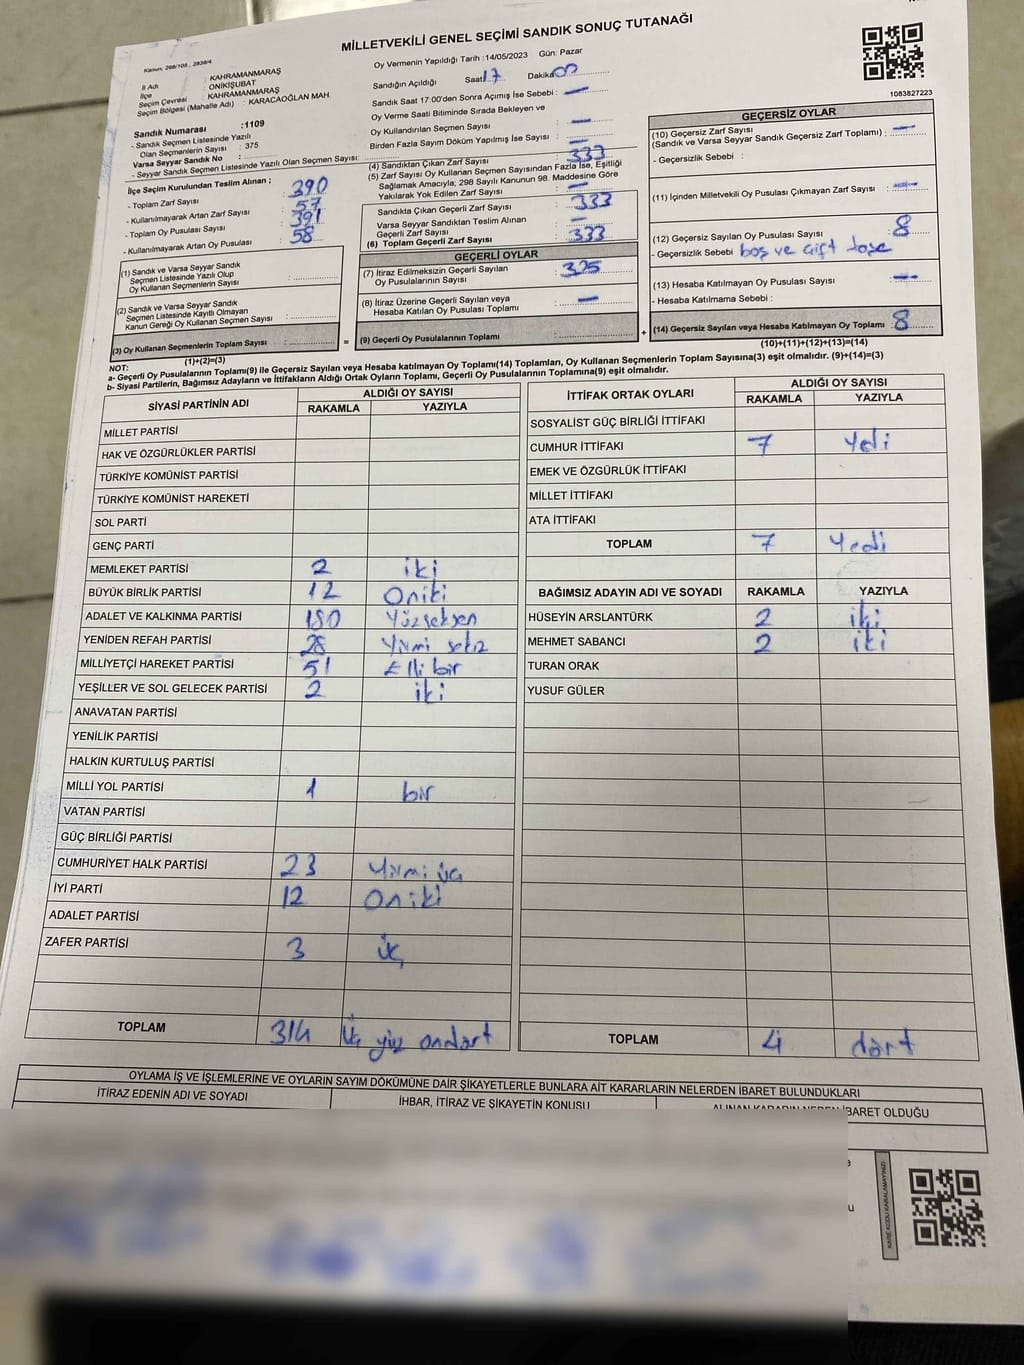 MİLLETVEKİLİ GENEL SEÇİMİ SANDIK SONUÇ TUTANAĞI
Kanun: 298/105 , 2839/4
Oy Vermenin Yapıldığı Tarih :14/05/2023 Gün: Pazar
İl Adı : KAHRAMANMARAŞ
İlçe : ONİKİŞUBAT
Seçim Çevresi : KAHRAMANMARAŞ
Seçim Bölgesi (Mahalle Adı) : KARACAOĞLAN MAH.
Sandığın Açıldığı Saat 17 Dakika 00
Sandık Saat 17:00'den Sonra Açılmış İse Sebebi : —
Oy Verme Saati Bitiminde Sırada Bekleyen ve
Oy Kullandırılan Seçmen Sayısı : —
Birden Fazla Sayım Döküm Yapılmış İse Sayısı : —
1083827223
Sandık Numarası :1109
- Sandık Seçmen Listesinde Yazılı
Olan Seçmenlerin Sayısı : 375
Varsa Seyyar Sandık No :
- Seyyar Sandık Seçmen Listesinde Yazılı Olan Seçmen Sayısı:
İlçe Seçim Kurulundan Teslim Alınan ;
- Toplam Zarf Sayısı : 390
- Kullanılmayarak Artan Zarf Sayısı : 57
- Toplam Oy Pusulası Sayısı : 391
- Kullanılmayarak Artan Oy Pusulası : 58
(1) Sandık ve Varsa Seyyar Sandık
Seçmen Listesinde Yazılı Olup
Oy Kullanan Seçmenlerin Sayısı :
(2) Sandık ve Varsa Seyyar Sandık
Seçmen Listesinde Kayıtlı Olmayan
Kanun Gereği Oy Kullanan Seçmen Sayısı :
(3) Oy Kullanan Seçmenlerin Toplam Sayısı :
(1)+(2)=(3)
(4) Sandıktan Çıkan Zarf Sayısı : 333
(5) Zarf Sayısı Oy Kullanan Seçmen Sayısından Fazla İse, Eşitliği
Sağlamak Amacıyla; 298 Sayılı Kanunun 98. Maddesine Göre
Yakılarak Yok Edilen Zarf Sayısı : —
Sandıkta Çıkan Geçerli Zarf Sayısı : 333
Varsa Seyyar Sandıktan Teslim Alınan
Geçerli Zarf Sayısı : —
(6) Toplam Geçerli Zarf Sayısı : 333
GEÇERLİ OYLAR
(7) İtiraz Edilmeksizin Geçerli Sayılan
Oy Pusulalarının Sayısı : 325
(8) İtiraz Üzerine Geçerli Sayılan veya
Hesaba Katılan Oy Pusulası Toplamı : —
= (9) Geçerli Oy Pusulalarının Toplamı :
GEÇERSİZ OYLAR
(10) Geçersiz Zarf Sayısı
(Sandık ve Varsa Seyyar Sandık Geçersiz Zarf Toplamı) : —
- Geçersizlik Sebebi :
(11) İçinden Milletvekili Oy Pusulası Çıkmayan Zarf Sayısı : —
(12) Geçersiz Sayılan Oy Pusulası Sayısı : 8
- Geçersizlik Sebebi boş ve çift
(13) Hesaba Katılmayan Oy Pusulası Sayısı : —
- Hesaba Katılmama Sebebi :
+ (14) Geçersiz Sayılan veya Hesaba Katılmayan Oy Toplamı : 8
(10)+(11)+(12)+(13)=(14)
NOT:
a- Geçerli Oy Pusulalarının Toplamı(9) ile Geçersiz Sayılan veya Hesaba katılmayan Oy Toplamı(14) Toplamları, Oy Kullanan Seçmenlerin Toplam Sayısına(3) eşit olmalıdır. (9)+(14)=(3)
b- Siyasi Partilerin, Bağımsız Adayların ve İttifakların Aldığı Ortak Oyların Toplamı, Geçerli Oy Pusulalarının Toplamına(9) eşit olmalıdır.
SİYASİ PARTİNİN ADI ALDIĞI OY SAYISI
RAKAMLA YAZIYLA
MİLLET PARTİSİ
HAK VE ÖZGÜRLÜKLER PARTİSİ
TÜRKİYE KOMÜNİST PARTİSİ
TÜRKİYE KOMÜNİST HAREKETİ
SOL PARTİ
GENÇ PARTİ
MEMLEKET PARTİSİ 2 iki
BÜYÜK BİRLİK PARTİSİ 12 Oniki
ADALET VE KALKINMA PARTİSİ 180 Yüzseksen
YENİDEN REFAH PARTİSİ 28 Yirmi sekiz
MİLLİYETÇİ HAREKET PARTİSİ 51 Elli bir
YEŞİLLER VE SOL GELECEK PARTİSİ 2 iki
ANAVATAN PARTİSİ
YENİLİK PARTİSİ
HALKIN KURTULUŞ PARTİSİ
MİLLİ YOL PARTİSİ 1 bir
VATAN PARTİSİ
GÜÇ BİRLİĞİ PARTİSİ
CUMHURİYET HALK PARTİSİ 23 Yirmi üç
İYİ PARTİ 12 Oniki
ADALET PARTİSİ
ZAFER PARTİSİ 3 üç
TOPLAM 314 üç yüz ondört
İTTİFAK ORTAK OYLARI ALDIĞI OY SAYISI
RAKAMLA YAZIYLA
SOSYALİST GÜÇ BİRLİĞİ İTTİFAKI
CUMHUR İTTİFAKI 7 Yedi
EMEK VE ÖZGÜRLÜK İTTİFAKI
MİLLET İTTİFAKI
ATA İTTİFAKI
TOPLAM 7 Yedi
BAĞIMSIZ ADAYIN ADI VE SOYADI RAKAMLA YAZIYLA
HÜSEYİN ARSLANTÜRK 2 iki
MEHMET SABANCI 2 iki
TURAN ORAK
YUSUF GÜLER
TOPLAM 4 dört
OYLAMA İŞ VE İŞLEMLERİNE VE OYLARIN SAYIM DÖKÜMÜNE DAİR ŞİKAYETLERLE BUNLARA AİT KARARLARIN NELERDEN İBARET BULUNDUKLARI
İTİRAZ EDENİN ADI VE SOYADI İHBAR, İTİRAZ VE ŞİKAYETİN KONUSU ALINAN KARARIN NEDEN İBARET OLDUĞU
KARE KODU KARALAMAYINIZ!